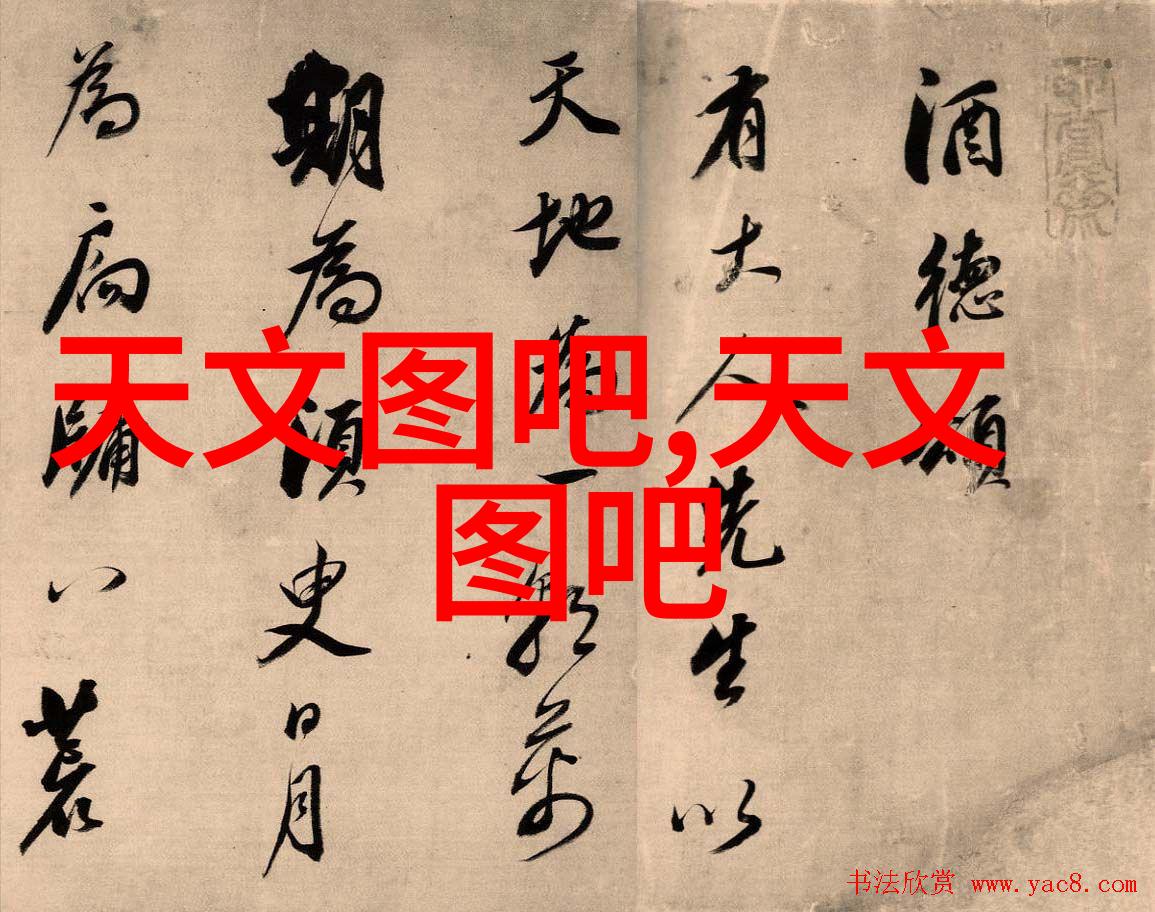 酒德頌
有大人先生以
天地為一朝萬
期為須臾日月
為扃牖八荒
天文图吧,天文
图吧
书法欣赏 www.yac8.com